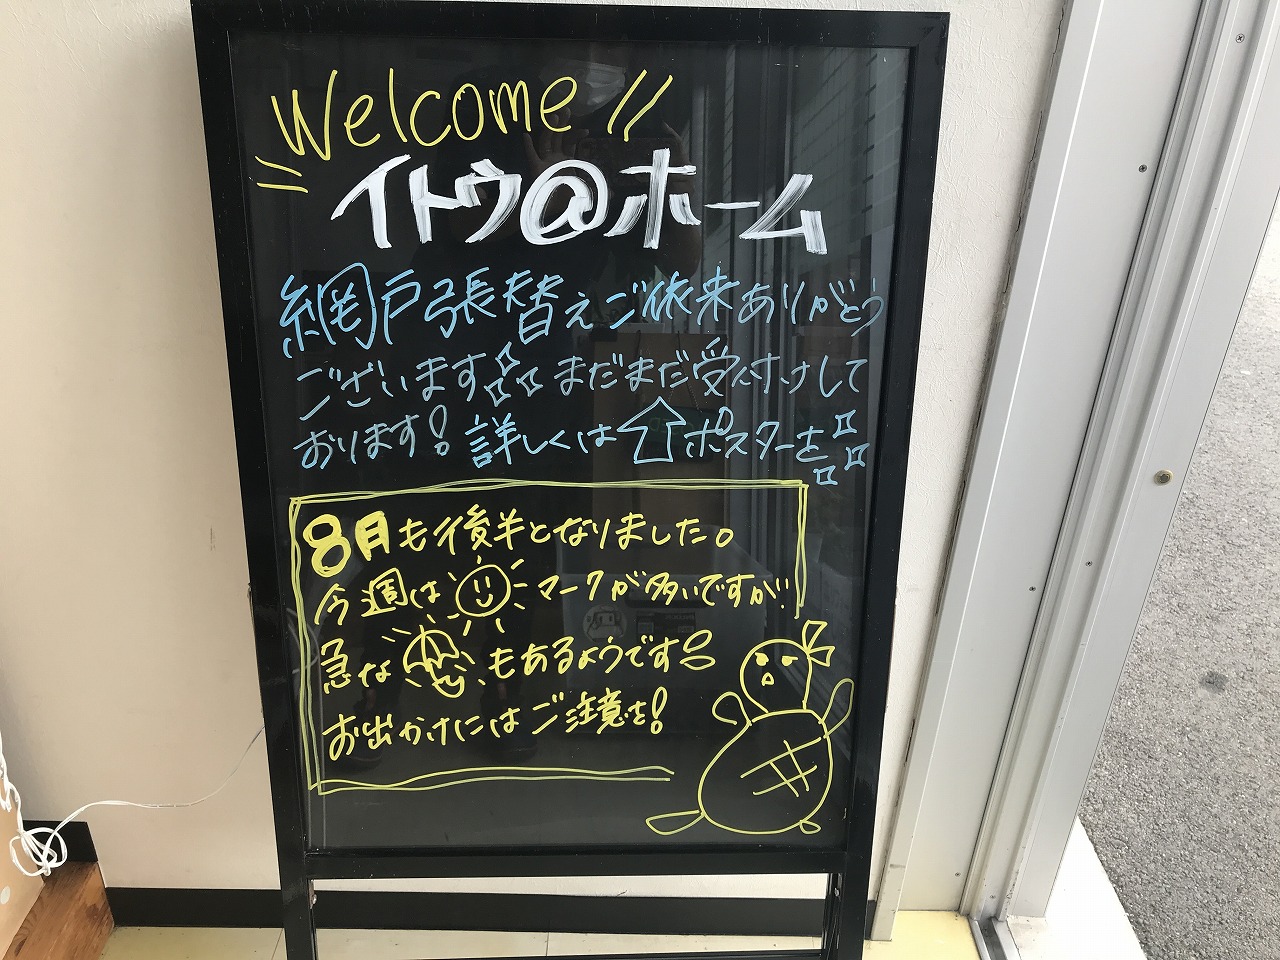 Welcome!!
イトウ@ホーム
網戸張替えご依来ありがとう
ございます まだまだ受け付けして
おります! 詳しくは⇧ポスターを
8月も後半となりました。
今週は マークが多いですが!!
急な もあるようです!!
お出かけにはご注意を!